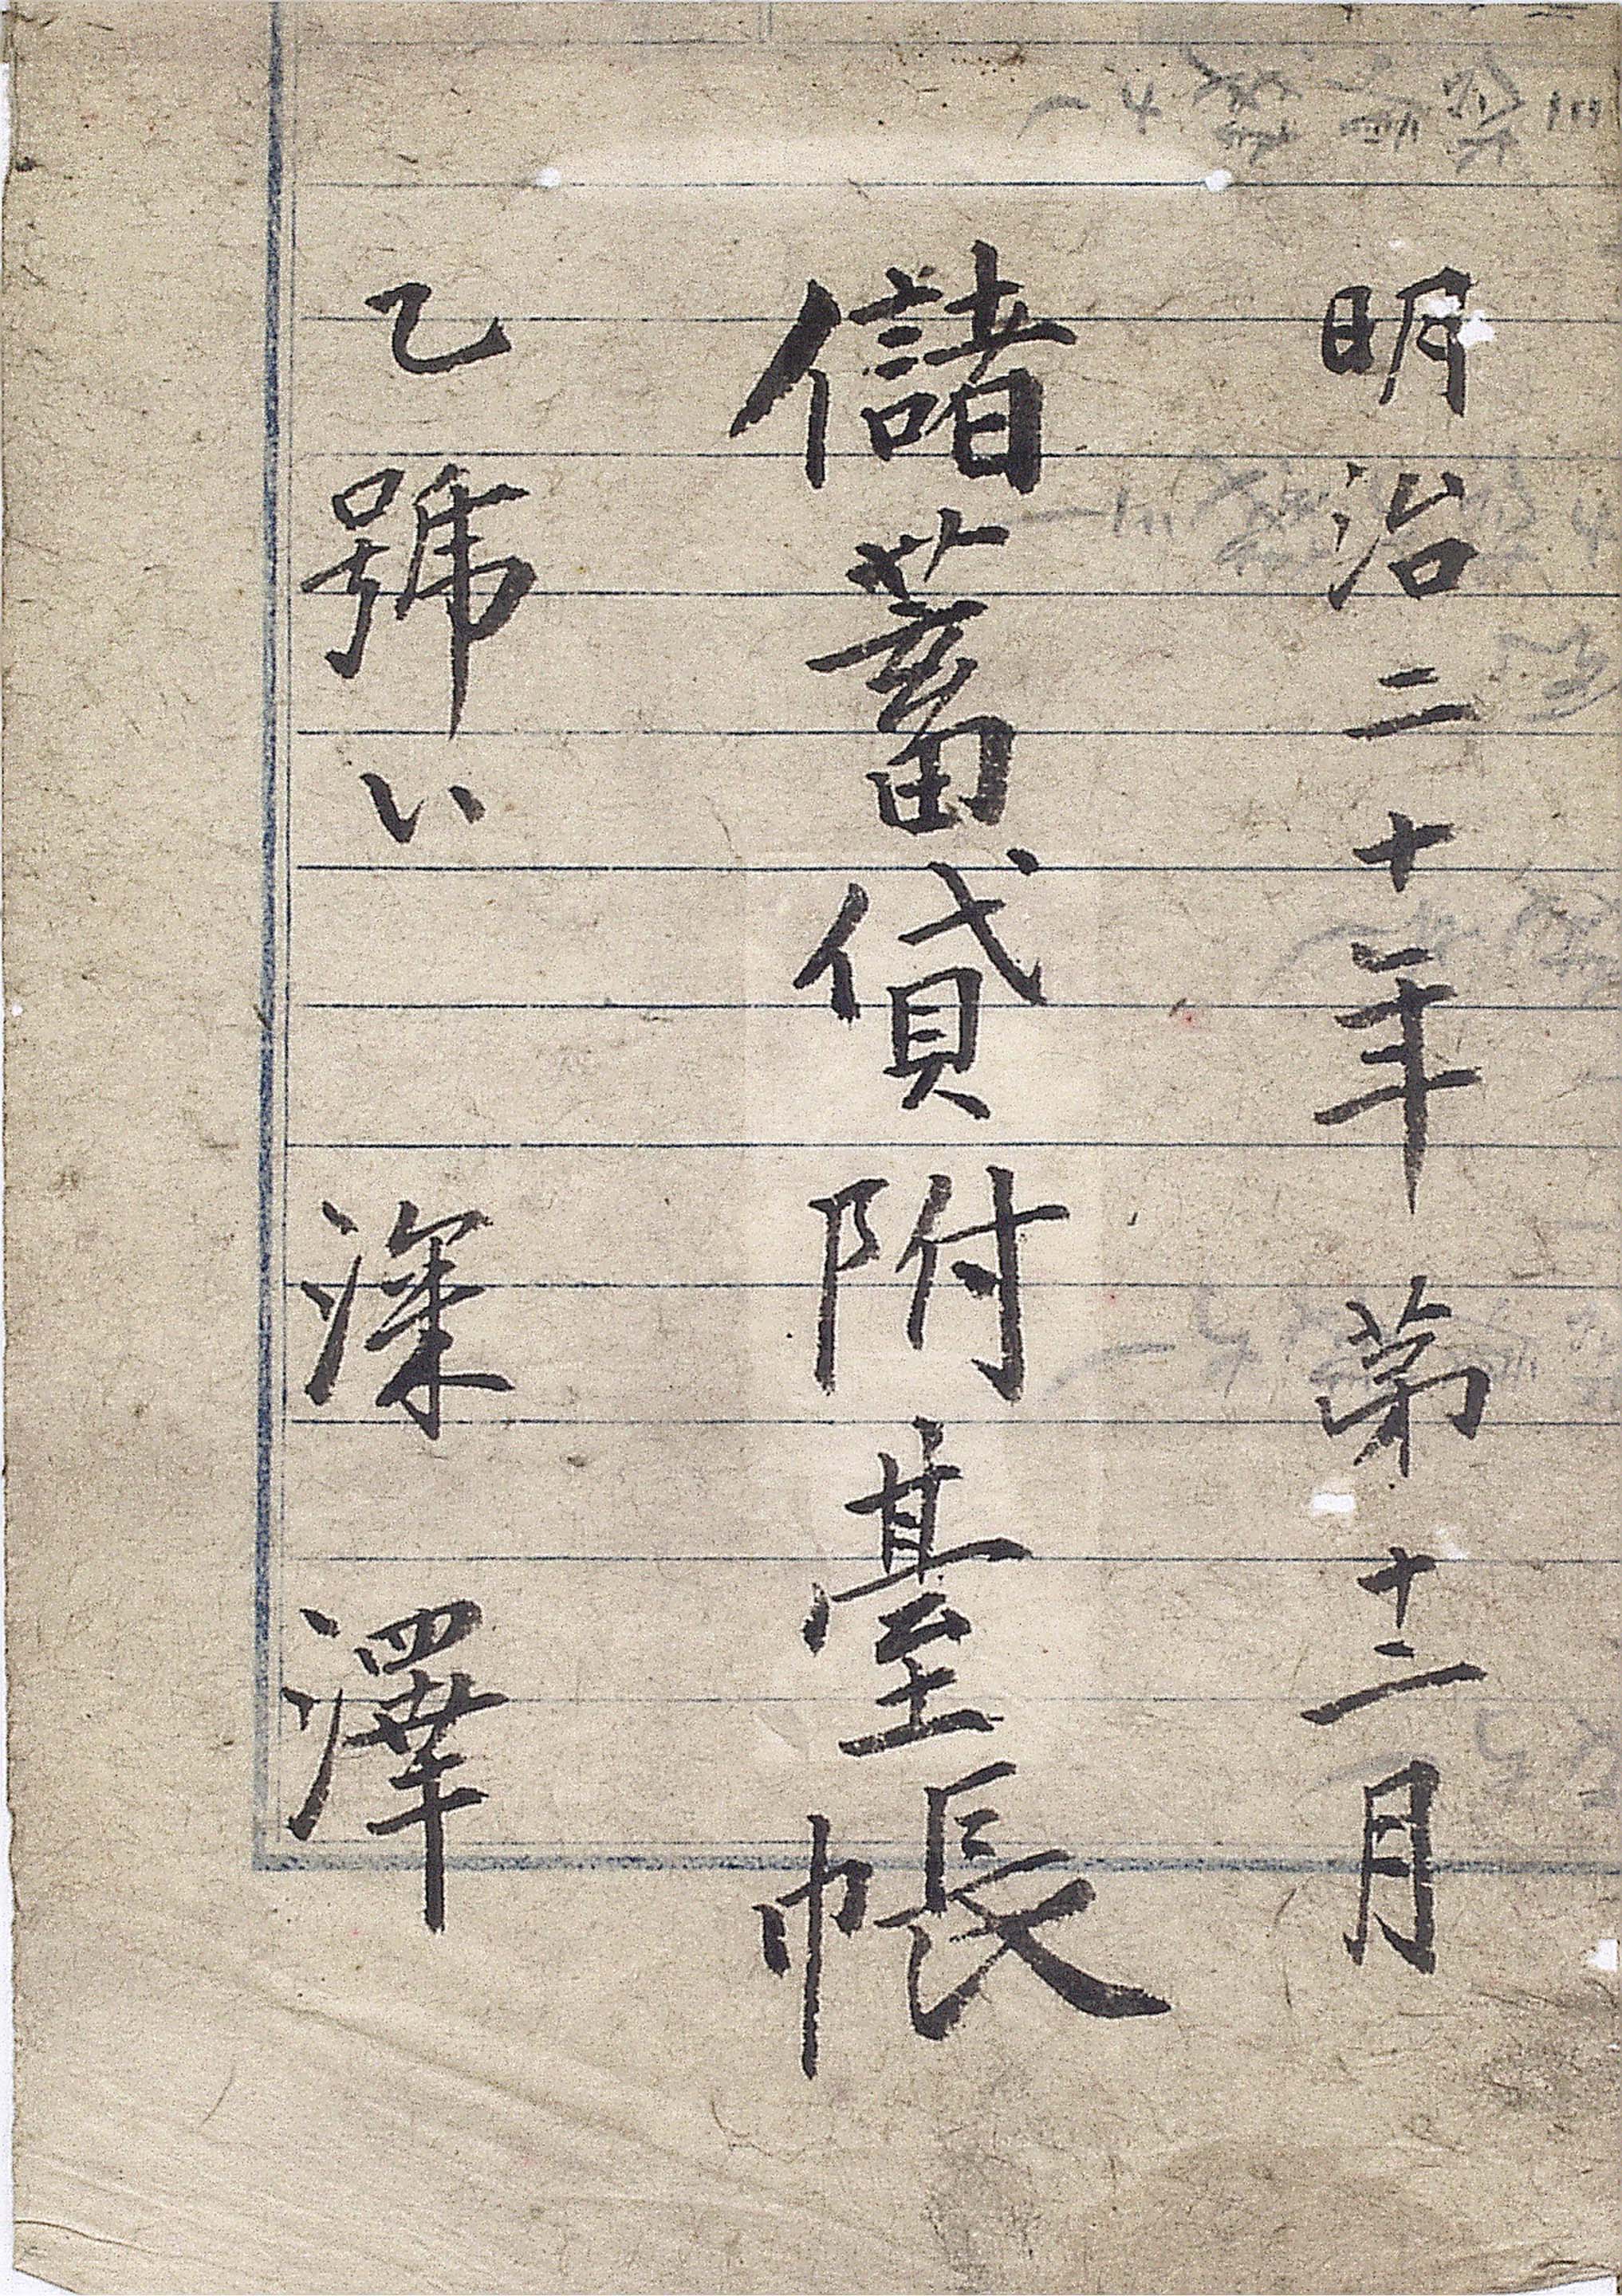 明治二十年第十二月
儲蓄貸附臺帳
乙號い 深澤